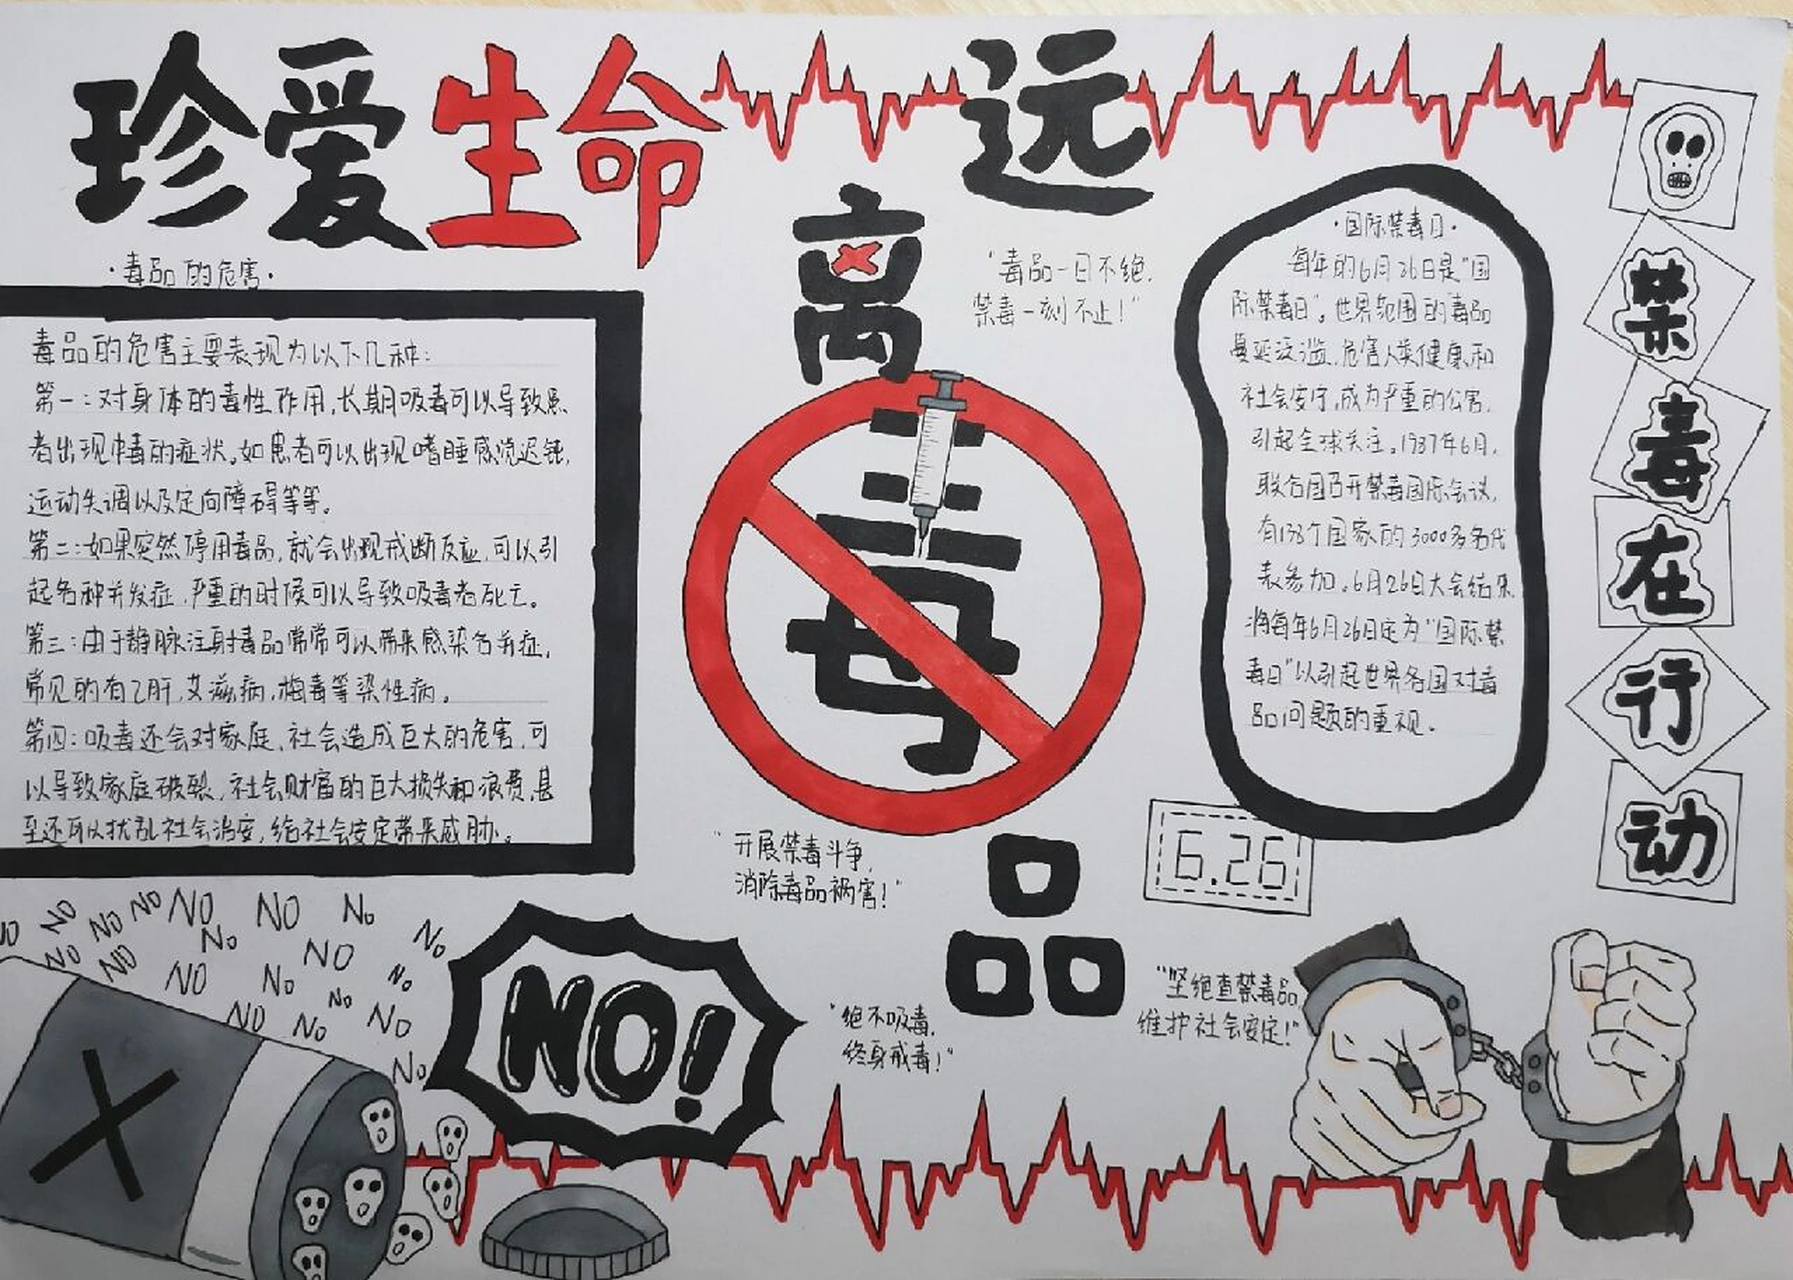 珍爱生命
远
离
毒
品
·毒品的危害·
毒品的危害主要表现为以下几种:
第一:对身体的毒性作用,长期吸毒可以导致患
者出现中毒的症状。如患者可以出现嗜睡感觉迟钝,
运动失调以及定向障碍等等。
第二:如果突然停用毒品,就会出现戒断反应,可以引
起各种并发症,严重的时候可以导致吸毒者死亡。
第三:由于静脉注射毒品常常可以带来感染各并症,
常见的有乙肝,艾滋病,梅毒等染性病。
第四:吸毒还会对家庭,社会造成巨大的危害,可
以导致家庭破裂,社会财富的巨大损失和浪费,甚
至还可以扰乱社会治安,给社会安定带来威胁。
"毒品一日不绝,
禁毒一刻不止!"
·国际禁毒日·
每年的6月26日是"国
际禁毒日"。世界范围的毒品
蔓延泛滥,危害人类健康和
社会安宁,成为严重的公害,
引起全球关注。1987年6月,
联合国召开禁毒国际会议,
有138个国家的3000多名代
表参加。6月26日大会结束
将每年6月26日定为"国际禁
毒日"以引起世界各国对毒
品问题的重视。
禁
毒
在
行
动
"开展禁毒斗争,
消除毒品祸害!"
6.26
"绝不吸毒,
终身戒毒!"
"坚绝查禁毒品,
维护社会安定!"
NO NO NO NO NO NO No
NO NO No NO No
NO No No No
NO No No
No
NO!
X